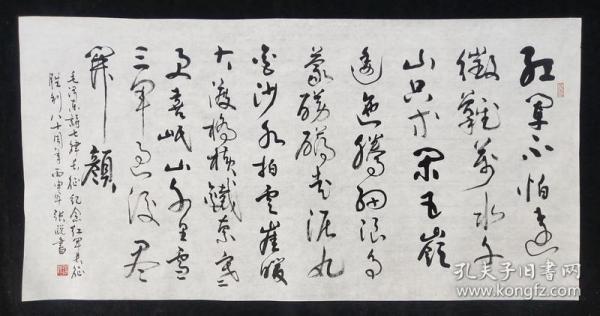 红军不怕远
征难万水千
山只等闲五岭
逶迤腾细浪乌
蒙磅礴走泥丸
金沙水拍云崖暖
大渡桥横铁索寒
更喜岷山千里雪
三军过后尽
开颜
毛泽东诗七律长征纪念红军长征
胜利八十周年丙申年张 书
孔夫子旧书网
www.kongfz.com